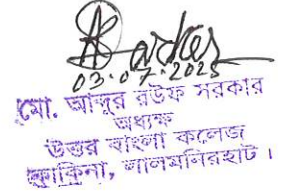 Sarker
03.07.2025
মো. আব্দুর রউফ সরকার
অধ্যক্ষ
উত্তর বাংলা কলেজ
কাকিনা, লালমনিরহাট।